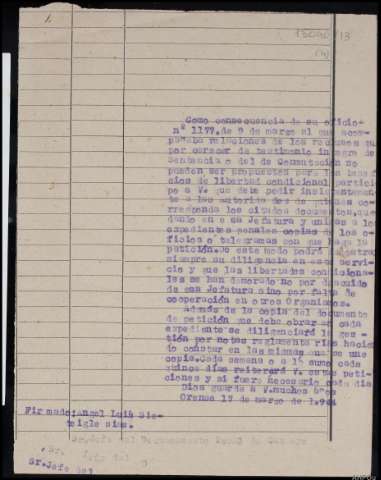 1.
15090/13
(4)
Como consecuencia de su oficio
nº 1177, de 9 de marzo al que acom-
pañaba relaciones de los reclusos que
por carecer de testimonio integro de
Sentencia o del de Conmutación no
pueden ser propuestos para los benefi
cios de libertad condicional, partici
po a V. que debe pedir insistentemen-
te a las autoridades de quienes co-
rresponda los citados documentos, que
dando en esa Jefatura y unidas a los
expedientes penales copias de los o-
ficios o telegramas con que haga la
petición. De este modo podrá
siempre su diligencia en este servi-
cio y que las libertades condiciona-
les se han demorado no por descuido
de esa Jefatura sino por falta de
cooperación en otros Organismos.
Además de la copia del documento
de petición que debe obrar en cada
expediente se diligenciará la ges-
tión por notas reglamentarias hacien
do constar en las mismas que se une
copia. Cada semana o a lo sumo cada
quince dias reiterará V. estas peti-
ciones y si fuere necesario cada dia
Dios guarde a V. muchos años
Orense 17 de marzo de 1.944
Firmado: Angel Luis
Sr. Jefe del
Sr.
Sr. Jefe del